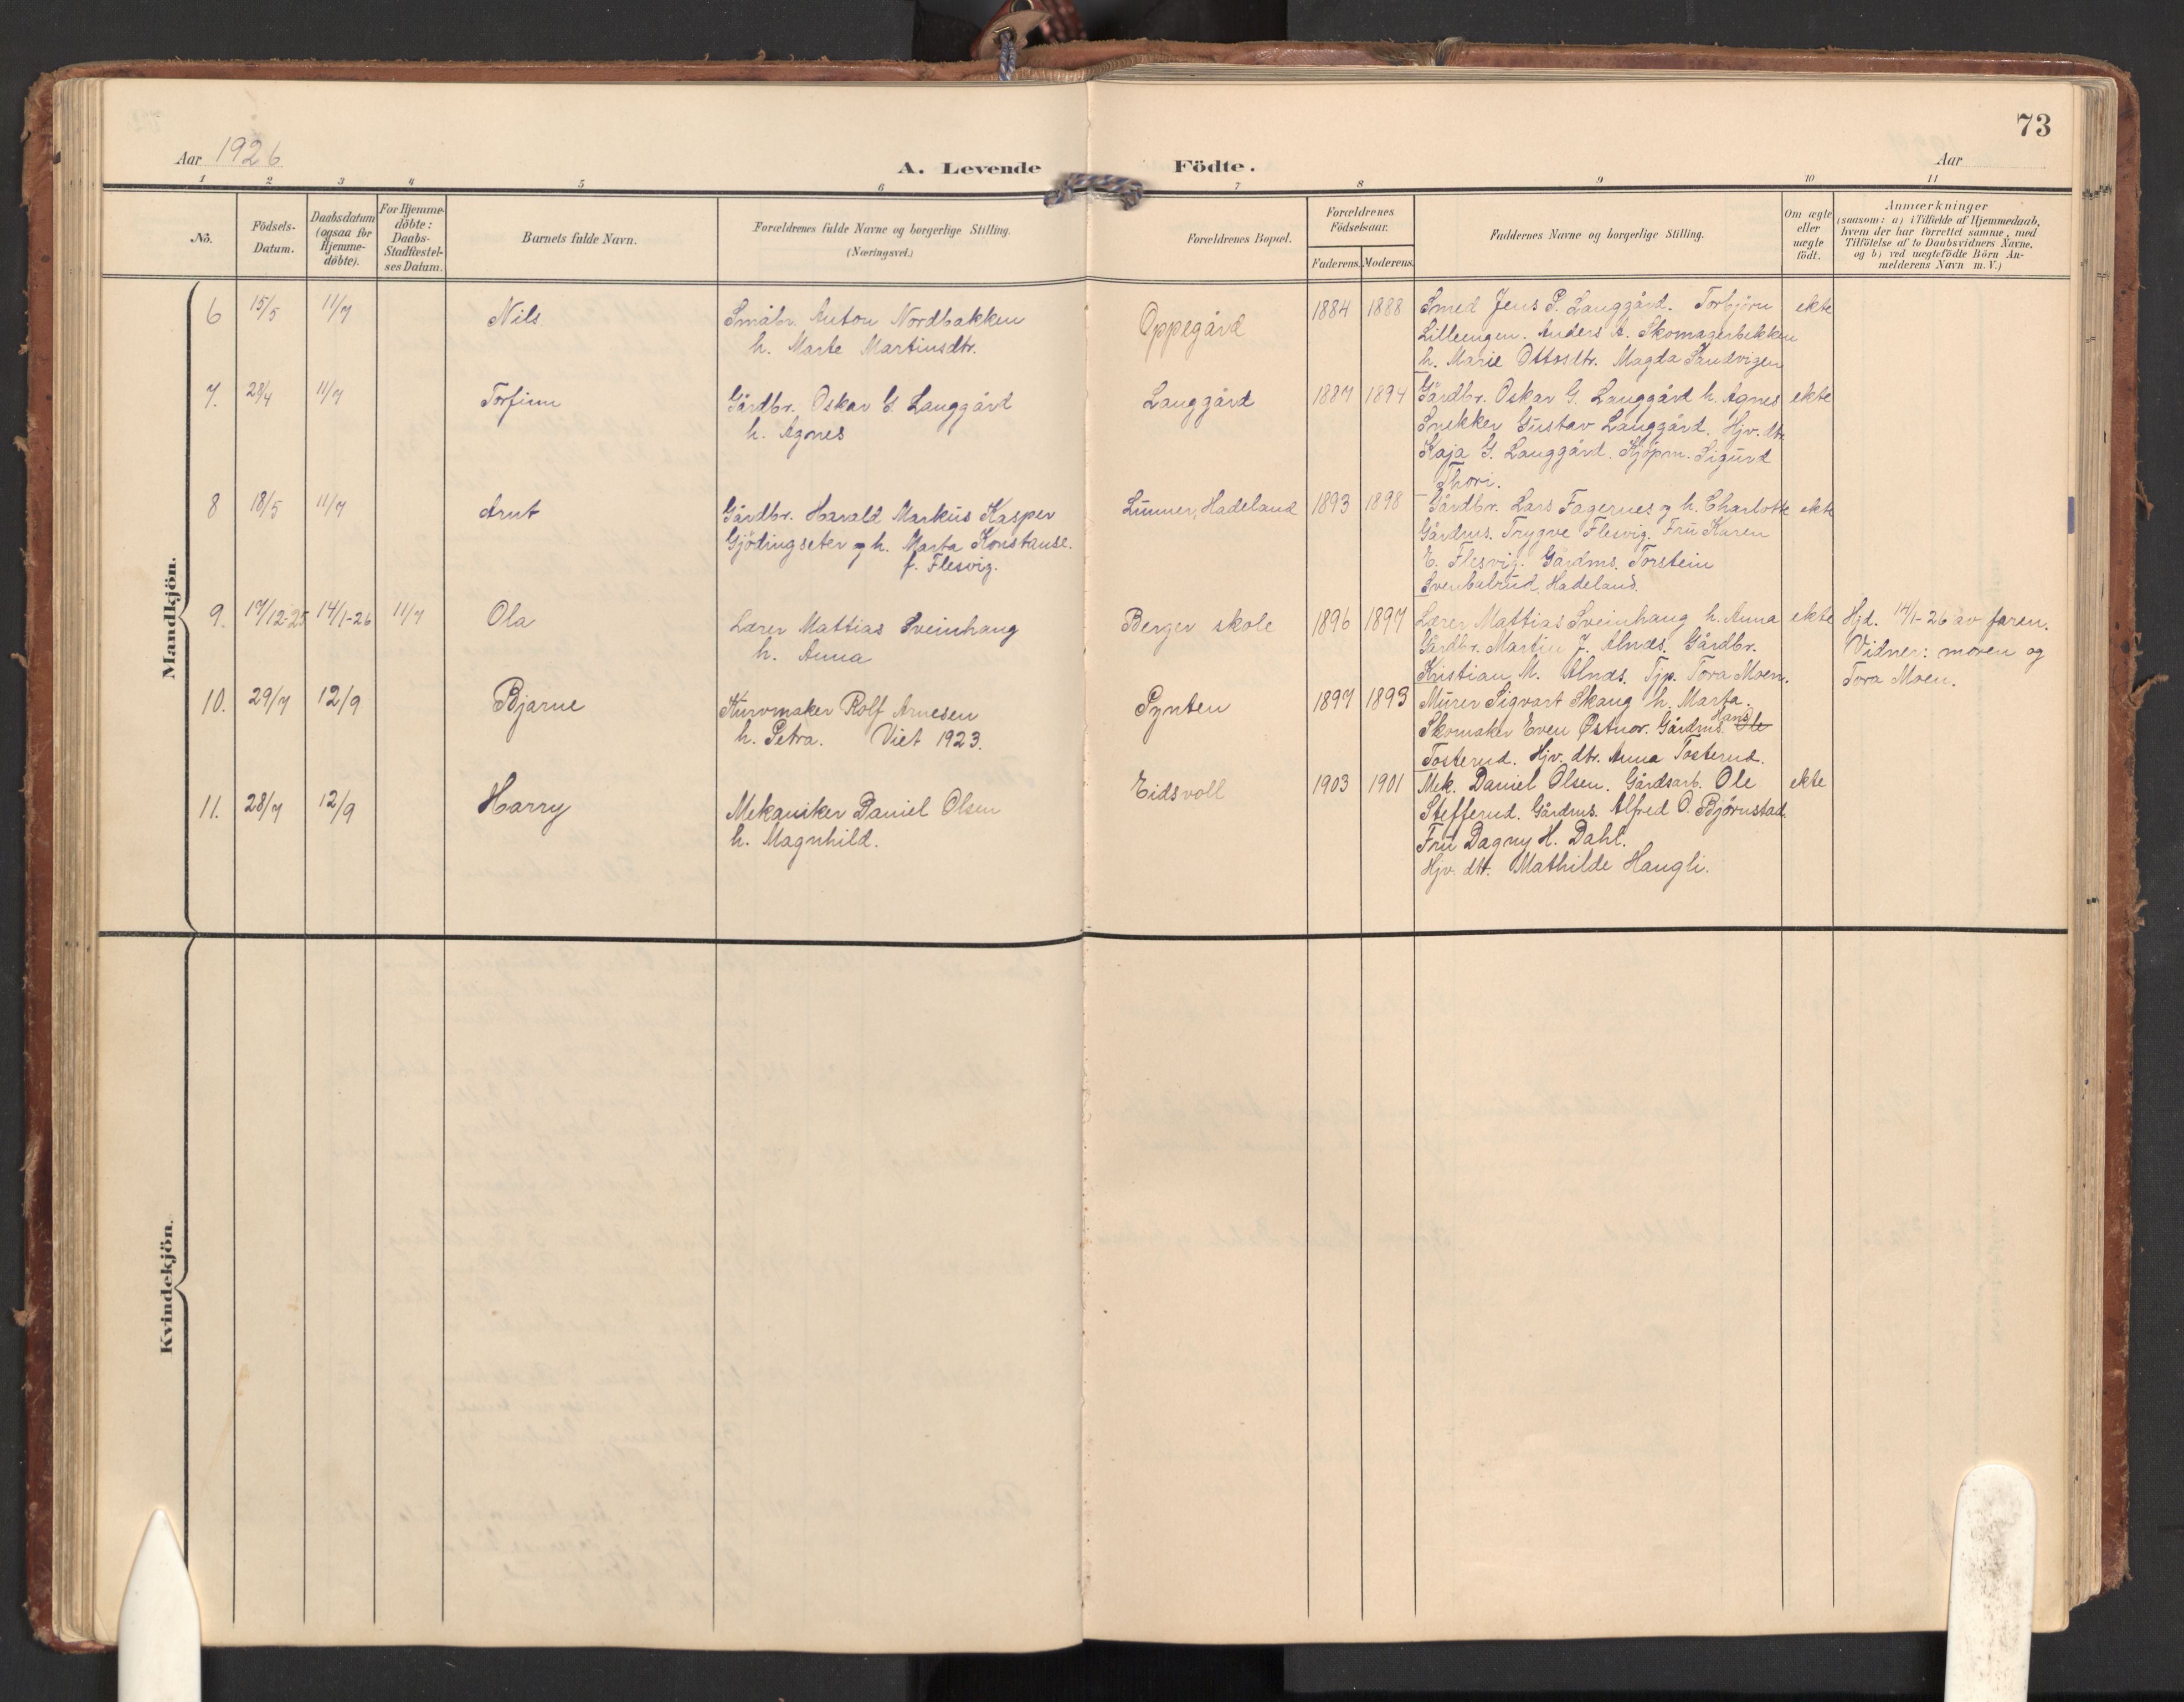 73
Aar 1926
A. Levende Födte.
Aar
1 2 3 4 5 6 7 8 9 10 11
No.
Födsels-
Datum.
Daabsdatum
(ogsaa for
Hjemme-
döbte).
For Hjemme-
döbte:
Daabs-
Stadfæstel-
ses Datum.
Barnets fulde Navn.
Forældrenes fulde Navne og borgerlige Stilling.
(Næringsvei.)
Forældrenes Bopæl.
Forældrenes
Födselsaar.
Faderens. Moderens.
Faddernes Navne og borgerlige Stilling.
Om ægte
eller
uægte
födt.
Anmærkninger
(saasom: a) i Tilfælde af Hjemmedaab,
hvem der har forrettet samme, med
Tilföielse af to Daabsvidners Navne,
og b) ved uægtefödte Börn An-
melderens Navn m. V.)
Mandkjön.
6 15/5 11/7 Nils
Småbr. Anton Nordbakken
h. Marte Martinsdtr.
Oppegård
1884 1888
Smed Jens P. Langgård. Torbjörn
Lilleengen. Anders A. Skomagerbekken
h. Marie Ottosdtr. Magda Sandvigen
ekte
7. 29/4 11/7 Torfinn
Gårdbr. Oskar G. Langgård
h. Agnes
Langgård
1887 1894
Gårdbr. Oskar G. Langgård h. Agnes
Snekker Gustav Langgård. Hjv. dtr.
Kaja G. Langgård. Kjöpm. Sigurd
Thori.
ekte
8 18/5 11/7 Arnt
Gårdbr. Harald Markus Kasper
Gjödingseter og h. Marta Konstanse.
f. Flesvig.
Lunner, Hadeland
1893 1898
Gårdbr. Lars Fagernes og h. Charlotte
Gårdms. Trygve Flesvig. Fru Karen
E. Flesvig. Gårdms. Torstein
Svenbalrud, Hadeland.
ekte
9. 17/12-25 14/1-26 11/7 Ola
Lærer Mattias Sveinhaug
h. Anna
Berger skole
1896 1897
Lærer Mattias Sveinhaug h. Anna
Gårdbr. Martin J. Alnæs. Gårdbr.
Kristian M. Alnæs. Tjp. Tora Moen.
ekte
Hjd. 14/1-26 av faren.
Vidner: moren og
Tora Moen.
10. 29/7 12/9 Bjarne
Kurvmaker Rolf Arnesen
h. Petra. Viet 1923.
Synten
1897 1893
Murer Sigvart Skaug h. Marta.
Skomaker Even Østnor. Gårdms. Hans Ole
Tosterud. Hjv. dtr. Anna Tosterud.
11. 28/7 12/9 Harry
Mekaniker Daniel Olsen
h. Magnhild.
Eidsvoll
1903 1901
Mek. Daniel Olsen. Gårdsarb. Ole
Stefferud. Gårdms. Alfred O. Bjørnstad.
Fru Dagny H. Dahl.
Hjv. dtr. Mathilde Haugli.
ekte
Kvindekjön.